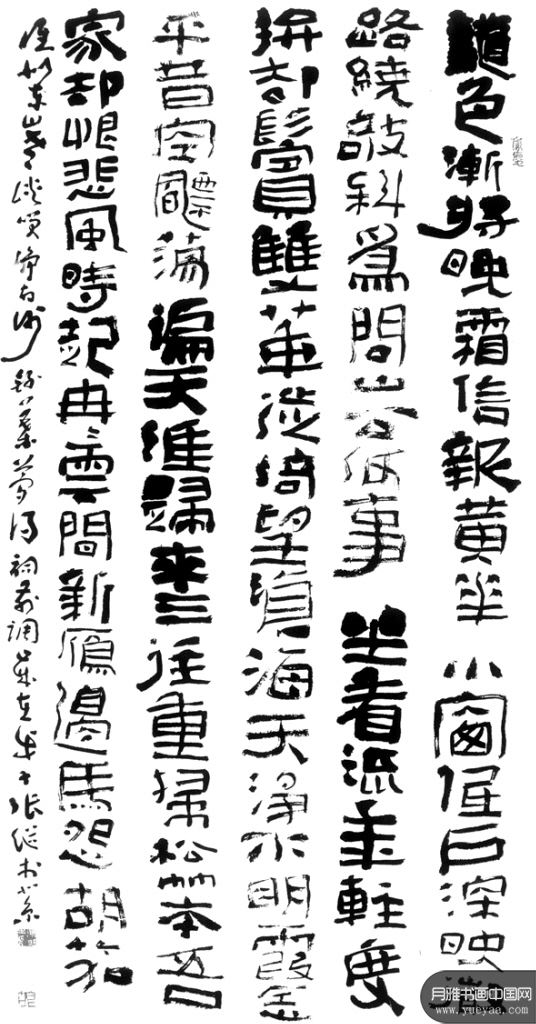 龝色漸將晚霜信報黃華小窗低戶深映微
路繞敧斜爲問山公何事坐看流年輕度
拚却鬢雙華徙倚望滄海天淨水明霞念
平昔空飄蕩遍天涯歸來三徑重掃松竹本吾
家却恨悲風時起冉〻雲間新雁邊馬怨胡笳
誰似東山老談笑淨胡沙 錄葉夢得詞 歲在 張继书於京
月雅书画中国网
www.yueyaa.com